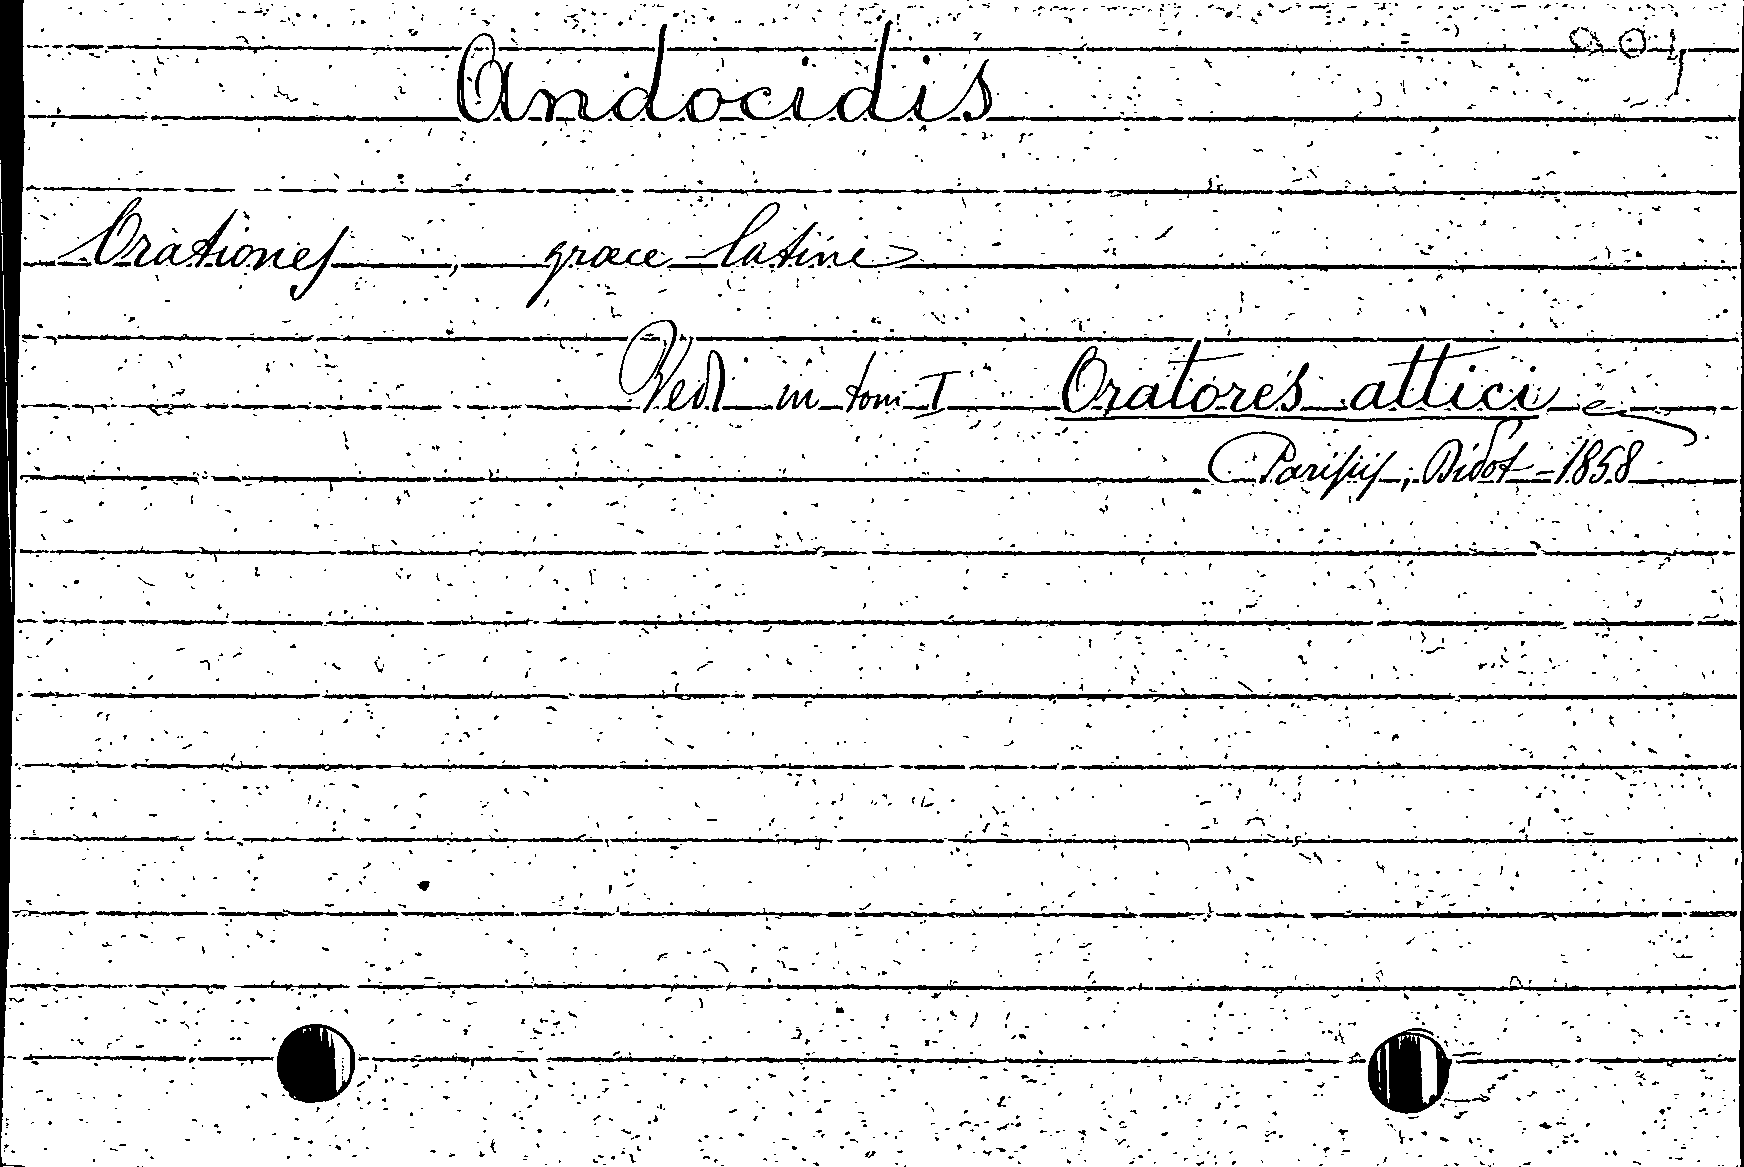 Andocidis
Orationes, graece-latine
Vedi in tom I Oratores attici
Parisiis, Didot - 1858